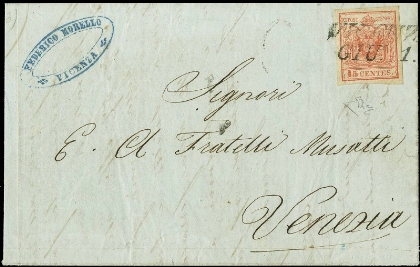 FEDERICO MORELLO
VICENZA
15 CENTES
GIU 1.
Signori
E. A Fratelli Musatti
Venezia